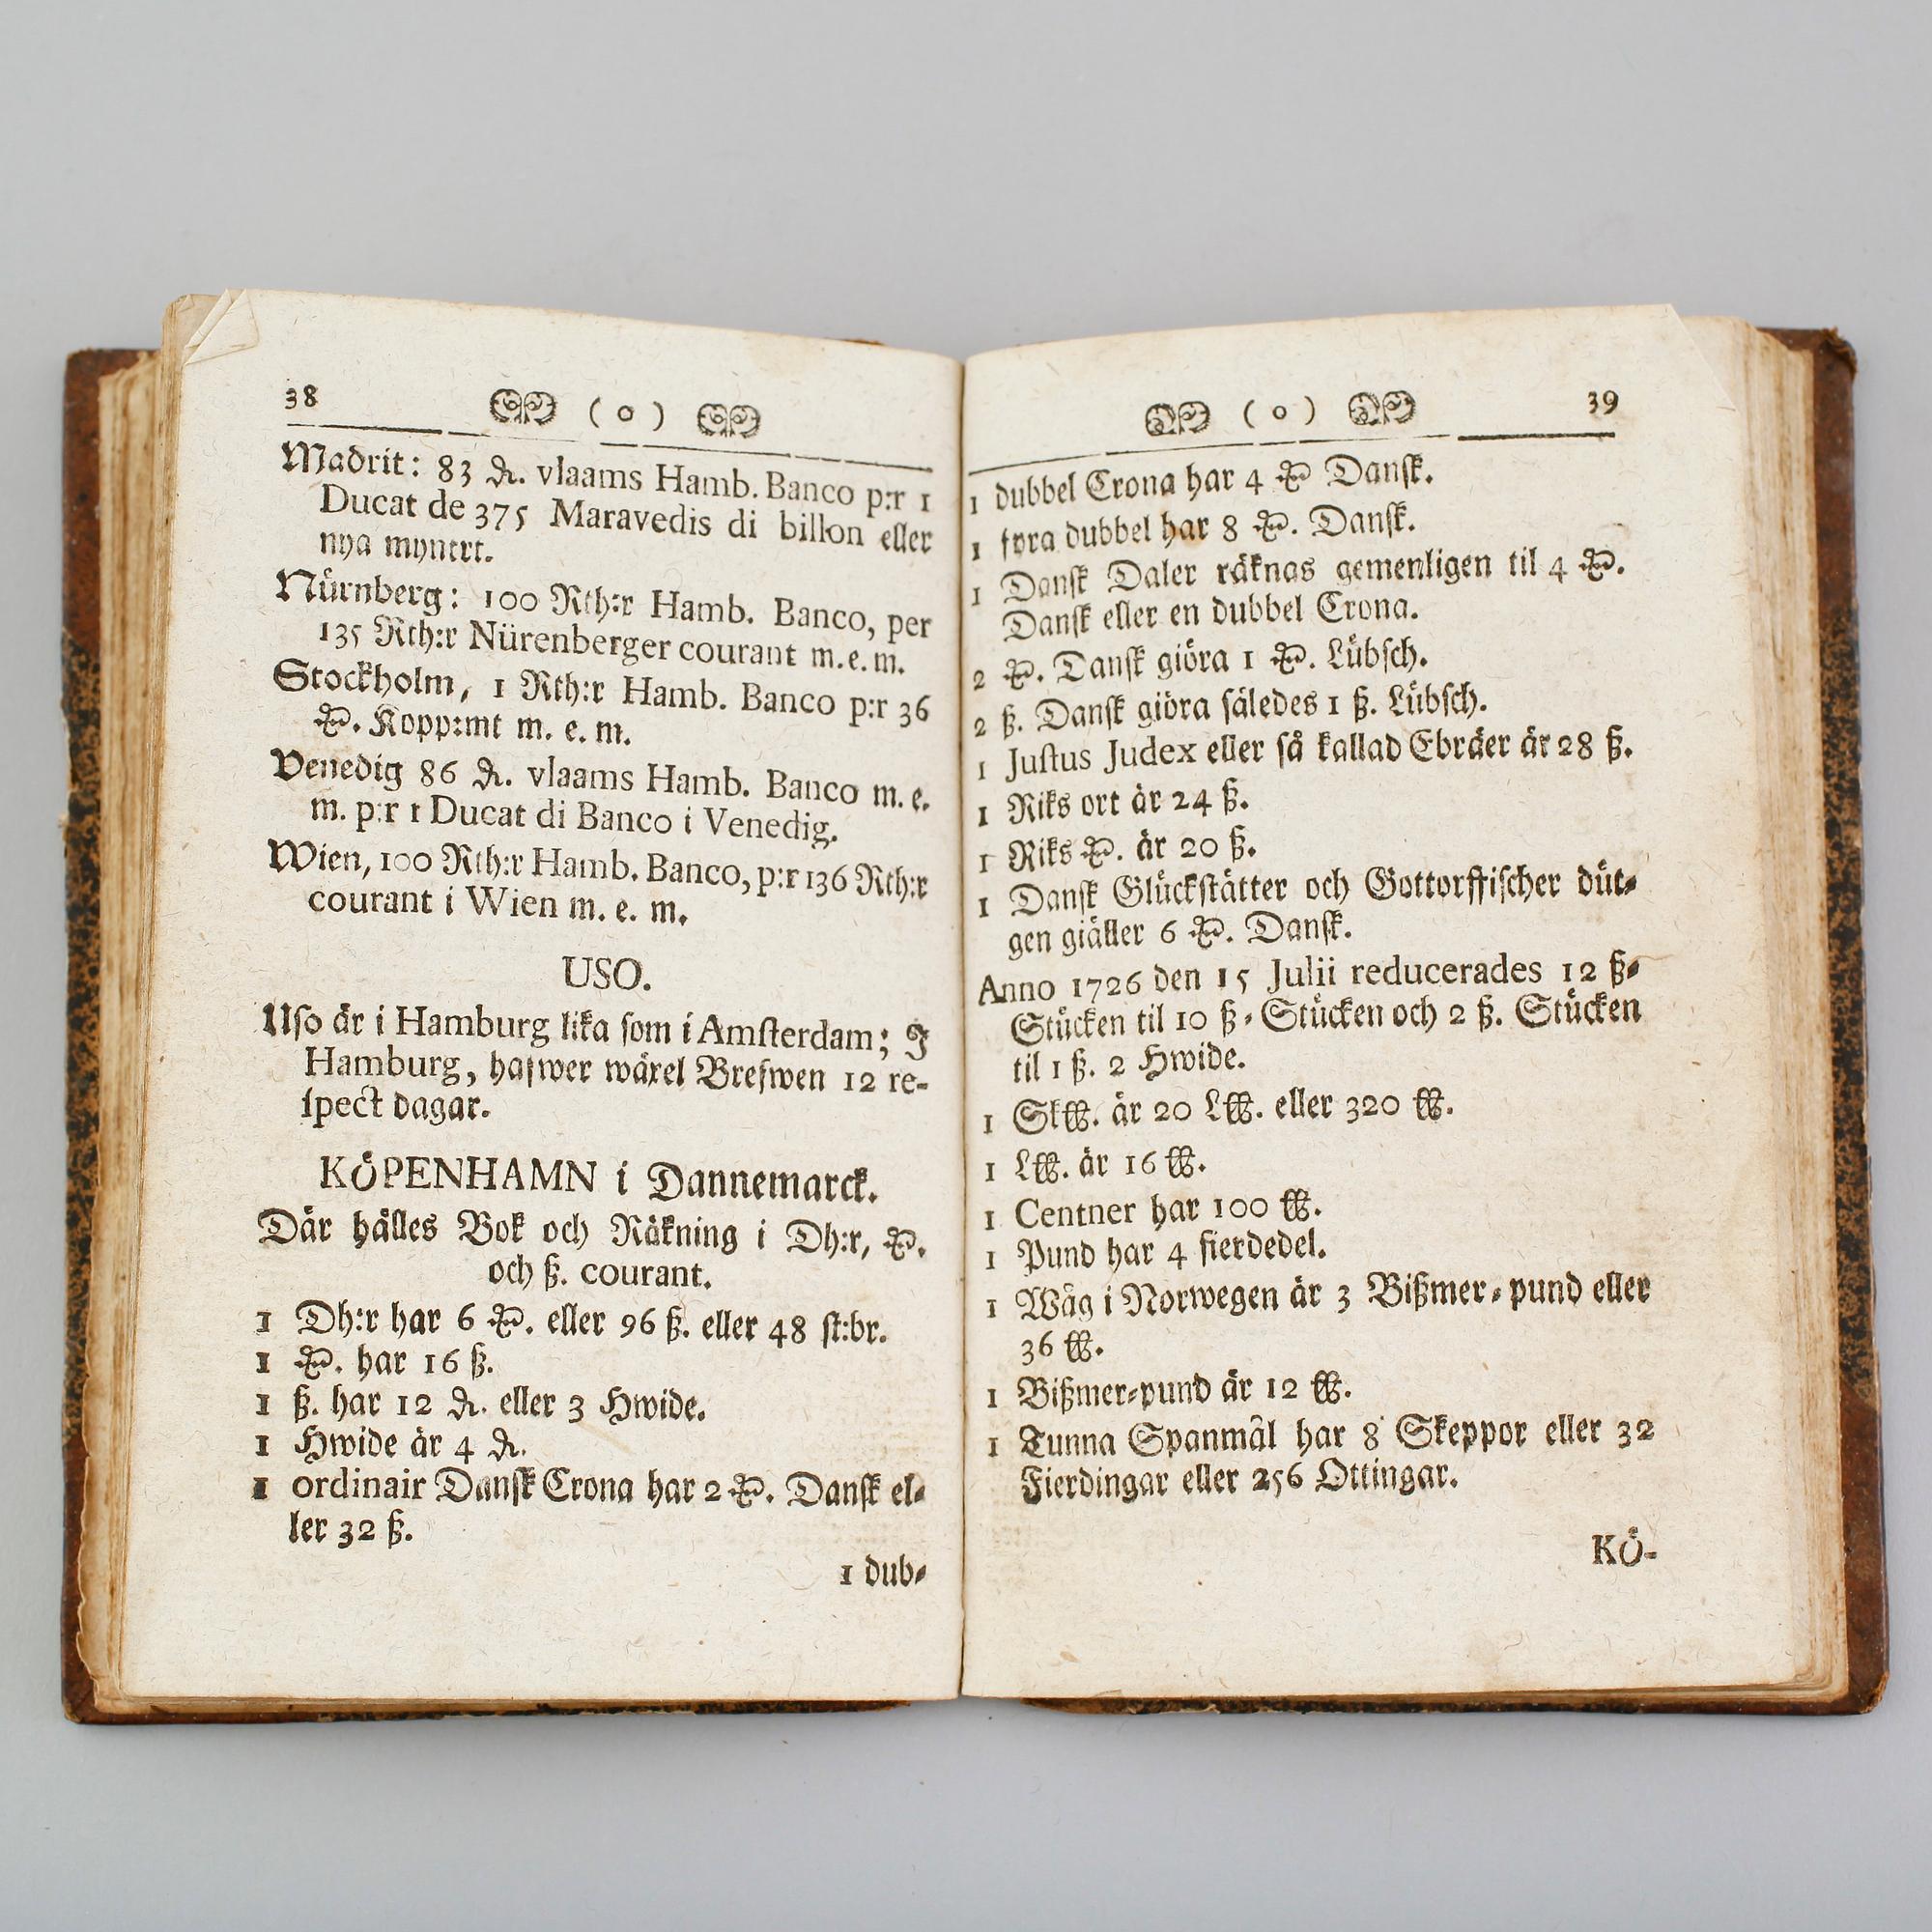 38 ( o )
Madrit: 83 ₰. vlaams Hamb. Banco p:r 1
Ducat de 375 Maravedis di billon eller
nya myntet.
Nürnberg: 100 Rth:r Hamb. Banco, per
135 Rth:r Nürenberger courant m. e. m.
Stockholm, 1 Rth:r Hamb. Banco p:r 36
. Kopp:mt m. e. m.
Venedig 86 ₰. vlaams Hamb. Banco m. e.
m. p:r 1 Ducat di Banco i Venedig.
Wien, 100 Rth:r Hamb. Banco, p:r 136 Rth:r
courant i Wien m. e. m.
USO.
Uso är i Hamburg lika som i Amsterdam; I
Hamburg, hafwer wäxel Brefwen 12 re-
spect dagar.
KÖPENHAMN i Dannemarck.
Där hålles Bok och Räkning i Dh:r, .
och ß. courant.
1 Dh:r har 6 . eller 96 ß. eller 48 st:br.
1 . har 16 ß.
1 ß. har 12 ₰. eller 3 Hwide.
1 Hwide är 4 ₰.
1 ordinair Dansk Crona har 2 . Dansk el-
ler 32 ß.
1 dub-
( o ) 39
1 dubbel Crona har 4 Dansk.
1 fyra dubbel har 8 . Dansk.
1 Dansk Daler räknas gemenligen til 4 .
Dansk eller en dubbel Crona.
2 . Dansk giöra 1 . Lübsch.
2 ß. Dansk giöra således 1 ß. Lübsch.
1 Justus Judex eller så kallad Ebräer är 28 ß.
1 Riks ort är 24 ß.
1 Riks . är 20 ß.
1 Dansk Glückstätter och Gottorffischer düt-
gen giäller 6 . Dansk.
Anno 1726 den 15 Julii reducerades 12 ß-
Stücken til 10 ß-Stücken och 2 ß. Stücken
til 1 ß. 2 Hwide.
1 Sk℔. är 20 L℔. eller 320 ℔.
1 L℔. är 16 ℔.
1 Centner har 100 ℔.
1 Pund har 4 fierdedel.
1 Wåg i Norwegen är 3 Bißmer-pund eller
36 ℔.
1 Bißmer-pund är 12 ℔.
1 Tunna Spanmål har 8 Skeppor eller 32
Fierdingar eller 256 Ottingar.
KÖ-